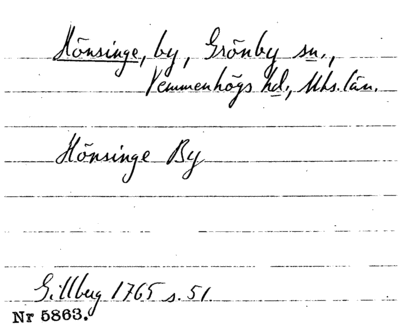 Hönsinge, by, Grönby sn.,
Vemmenhögs hd., Mhs. län.
Hönsinge By
Gillberg 1765 s. 51.
Nr 5863.